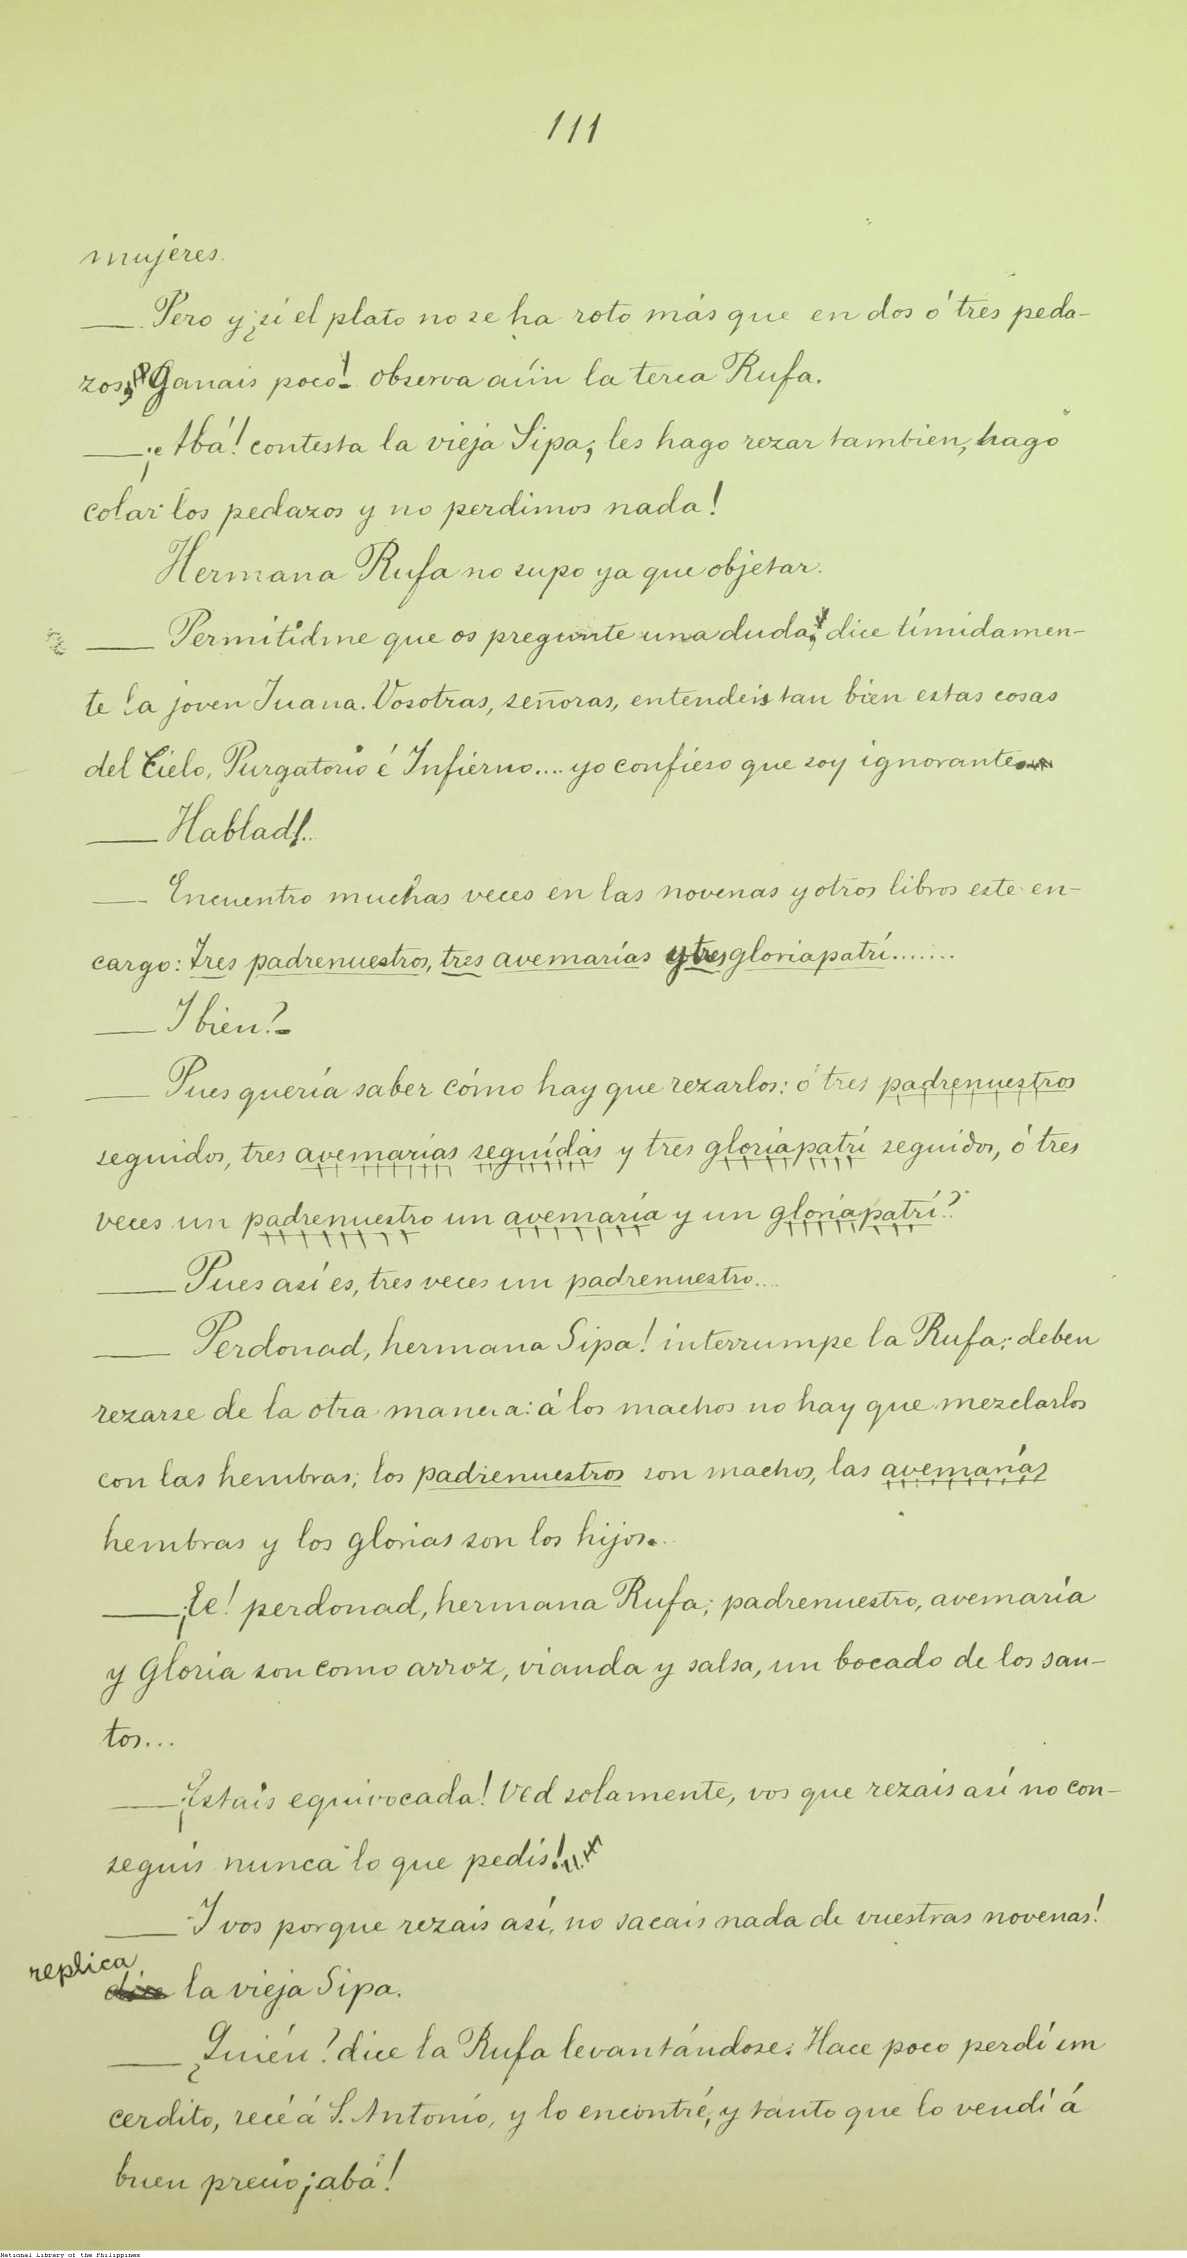 111
mujeres.
— Pero y ¿si el plato no se ha roto más que en dos ó tres peda-
zos? Ganais poco! observa aún la terca Rufa.
— ¡Abá! contesta la vieja Sipa; les hago rezar tambien, hago
colar los pedazos y no perdimos nada!
Hermana Rufa no supo ya que objetar.
— Permitidme que os pregunte una duda, dice tímidamen-
te la joven Juana. Vosotras, señoras, entendeis tan bien estas cosas
del Cielo, Purgatorio é Infierno.... yo confieso que soy ignorante.
— Hablad!
— Encuentro muchas veces en las novenas y otros libros este en-
cargo: tres padrenuestros, tres avemarías y tres gloriapatri.......
— Y bien?
— Pues quería saber cómo hay que rezarlos: ó tres padrenuestros
seguidos, tres avemarías seguidas y tres gloriapatri seguidos, ó tres
veces un padrenuestro un avemaría y un gloriapatri?
— Pues así es, tres veces un padrenuestro....
— Perdonad, hermana Sipa! interrumpe la Rufa; deben
rezarse de la otra manera: á los machos no hay que mezclarlos
con las hembras; los padrenuestros son machos, las avemarías
hembras y los glorias son los hijos.
— ¡Ee! perdonad, hermana Rufa; padrenuestro, avemaría
y Gloria son como arroz, vianda y salsa, un bocado de los san-
tos...
— ¡Estais equivocada! Ved solamente, vos que rezais así no con-
seguís nunca lo que pedís!
— Y vos porque rezais así, no sacais nada de vuestras novenas!
replica la vieja Sipa.
— ¿Quién? dice la Rufa levantándose. Hace poco perdí un
cerdito, recé á S. Antonio, y lo encontré, y tanto que lo vendí á
buen precio ¡abá!
National Library of the Philippines